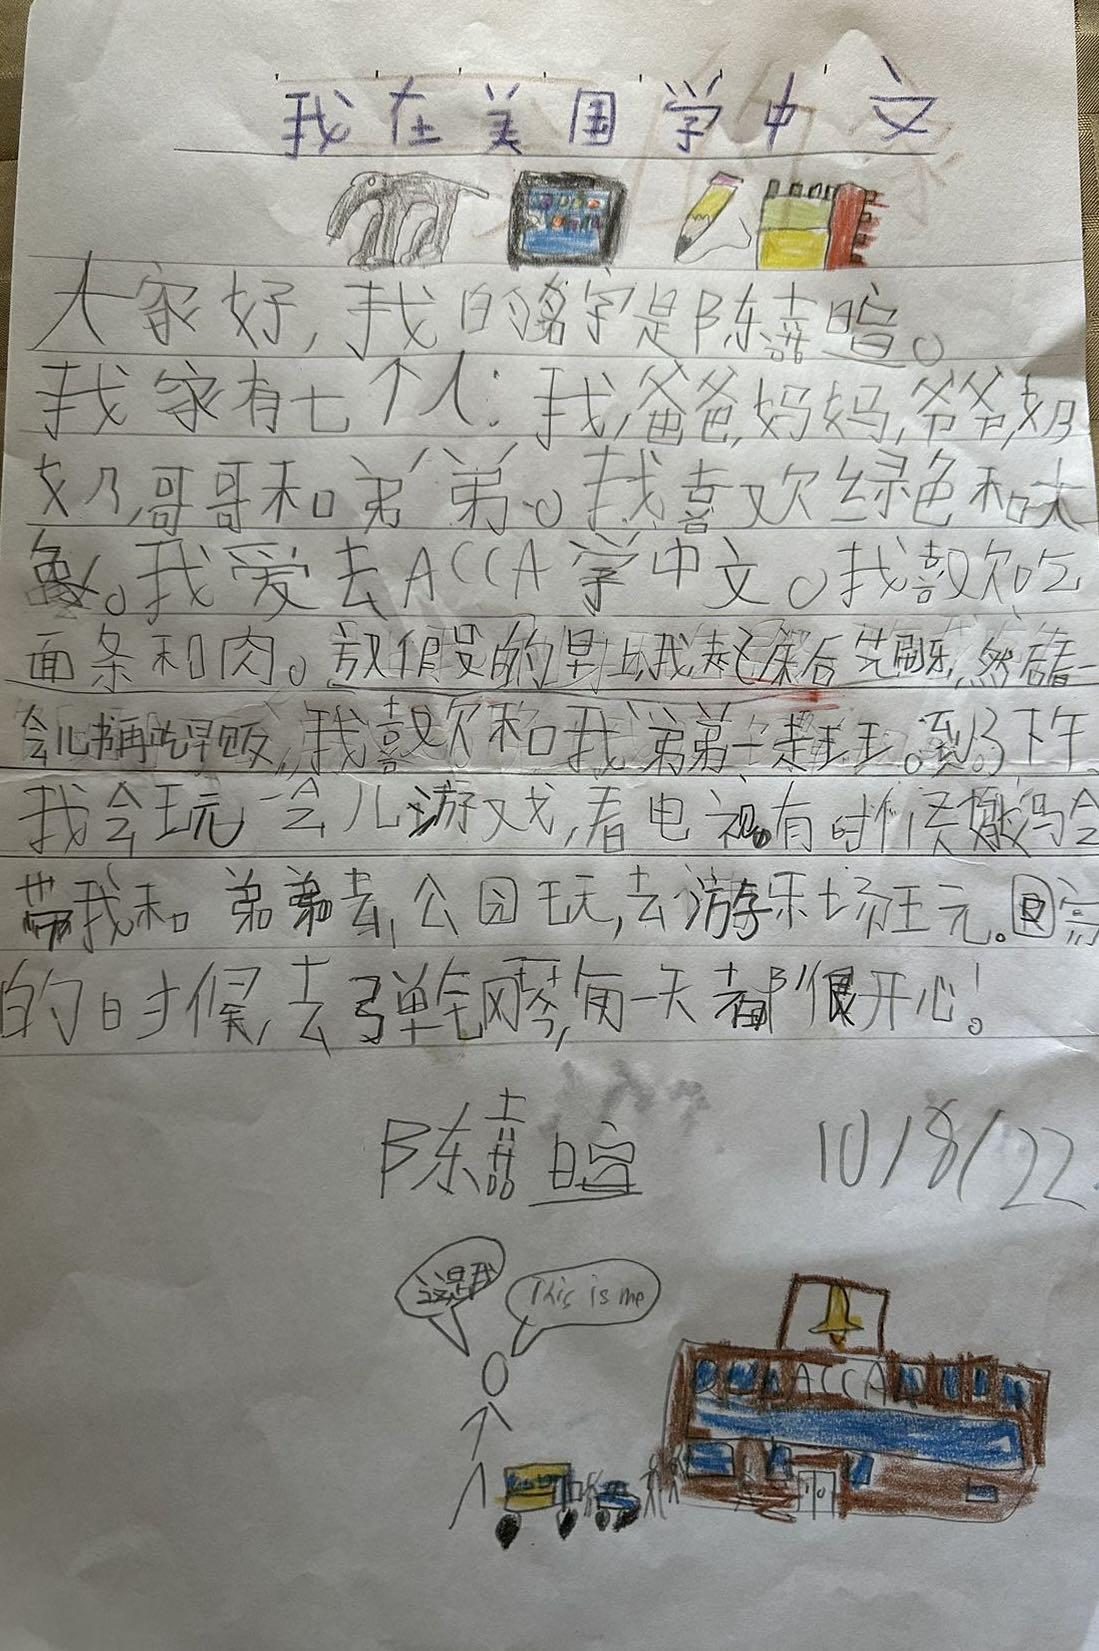 我在美国学中文
大家好,我的名字是陈嘉暄。
我家有七个人:我,爸爸,妈妈,爷爷,奶
奶,哥哥和弟弟。我喜欢绿色和大
象。我爱去ACCA学中文。我喜欢吃
面条和肉。放假的早上我起床后先刷牙,然后看一
会儿书再吃早饭,我喜欢和我弟弟一起玩。到了下午
我会玩一会儿游戏,看电视。有时候妈妈会
带我和弟弟去,公园玩,去游乐场玩。回家
的时候,去弹钢琴,每一天都很开心!
陈嘉暄 10/8/22
这是我 This is me
ACCA